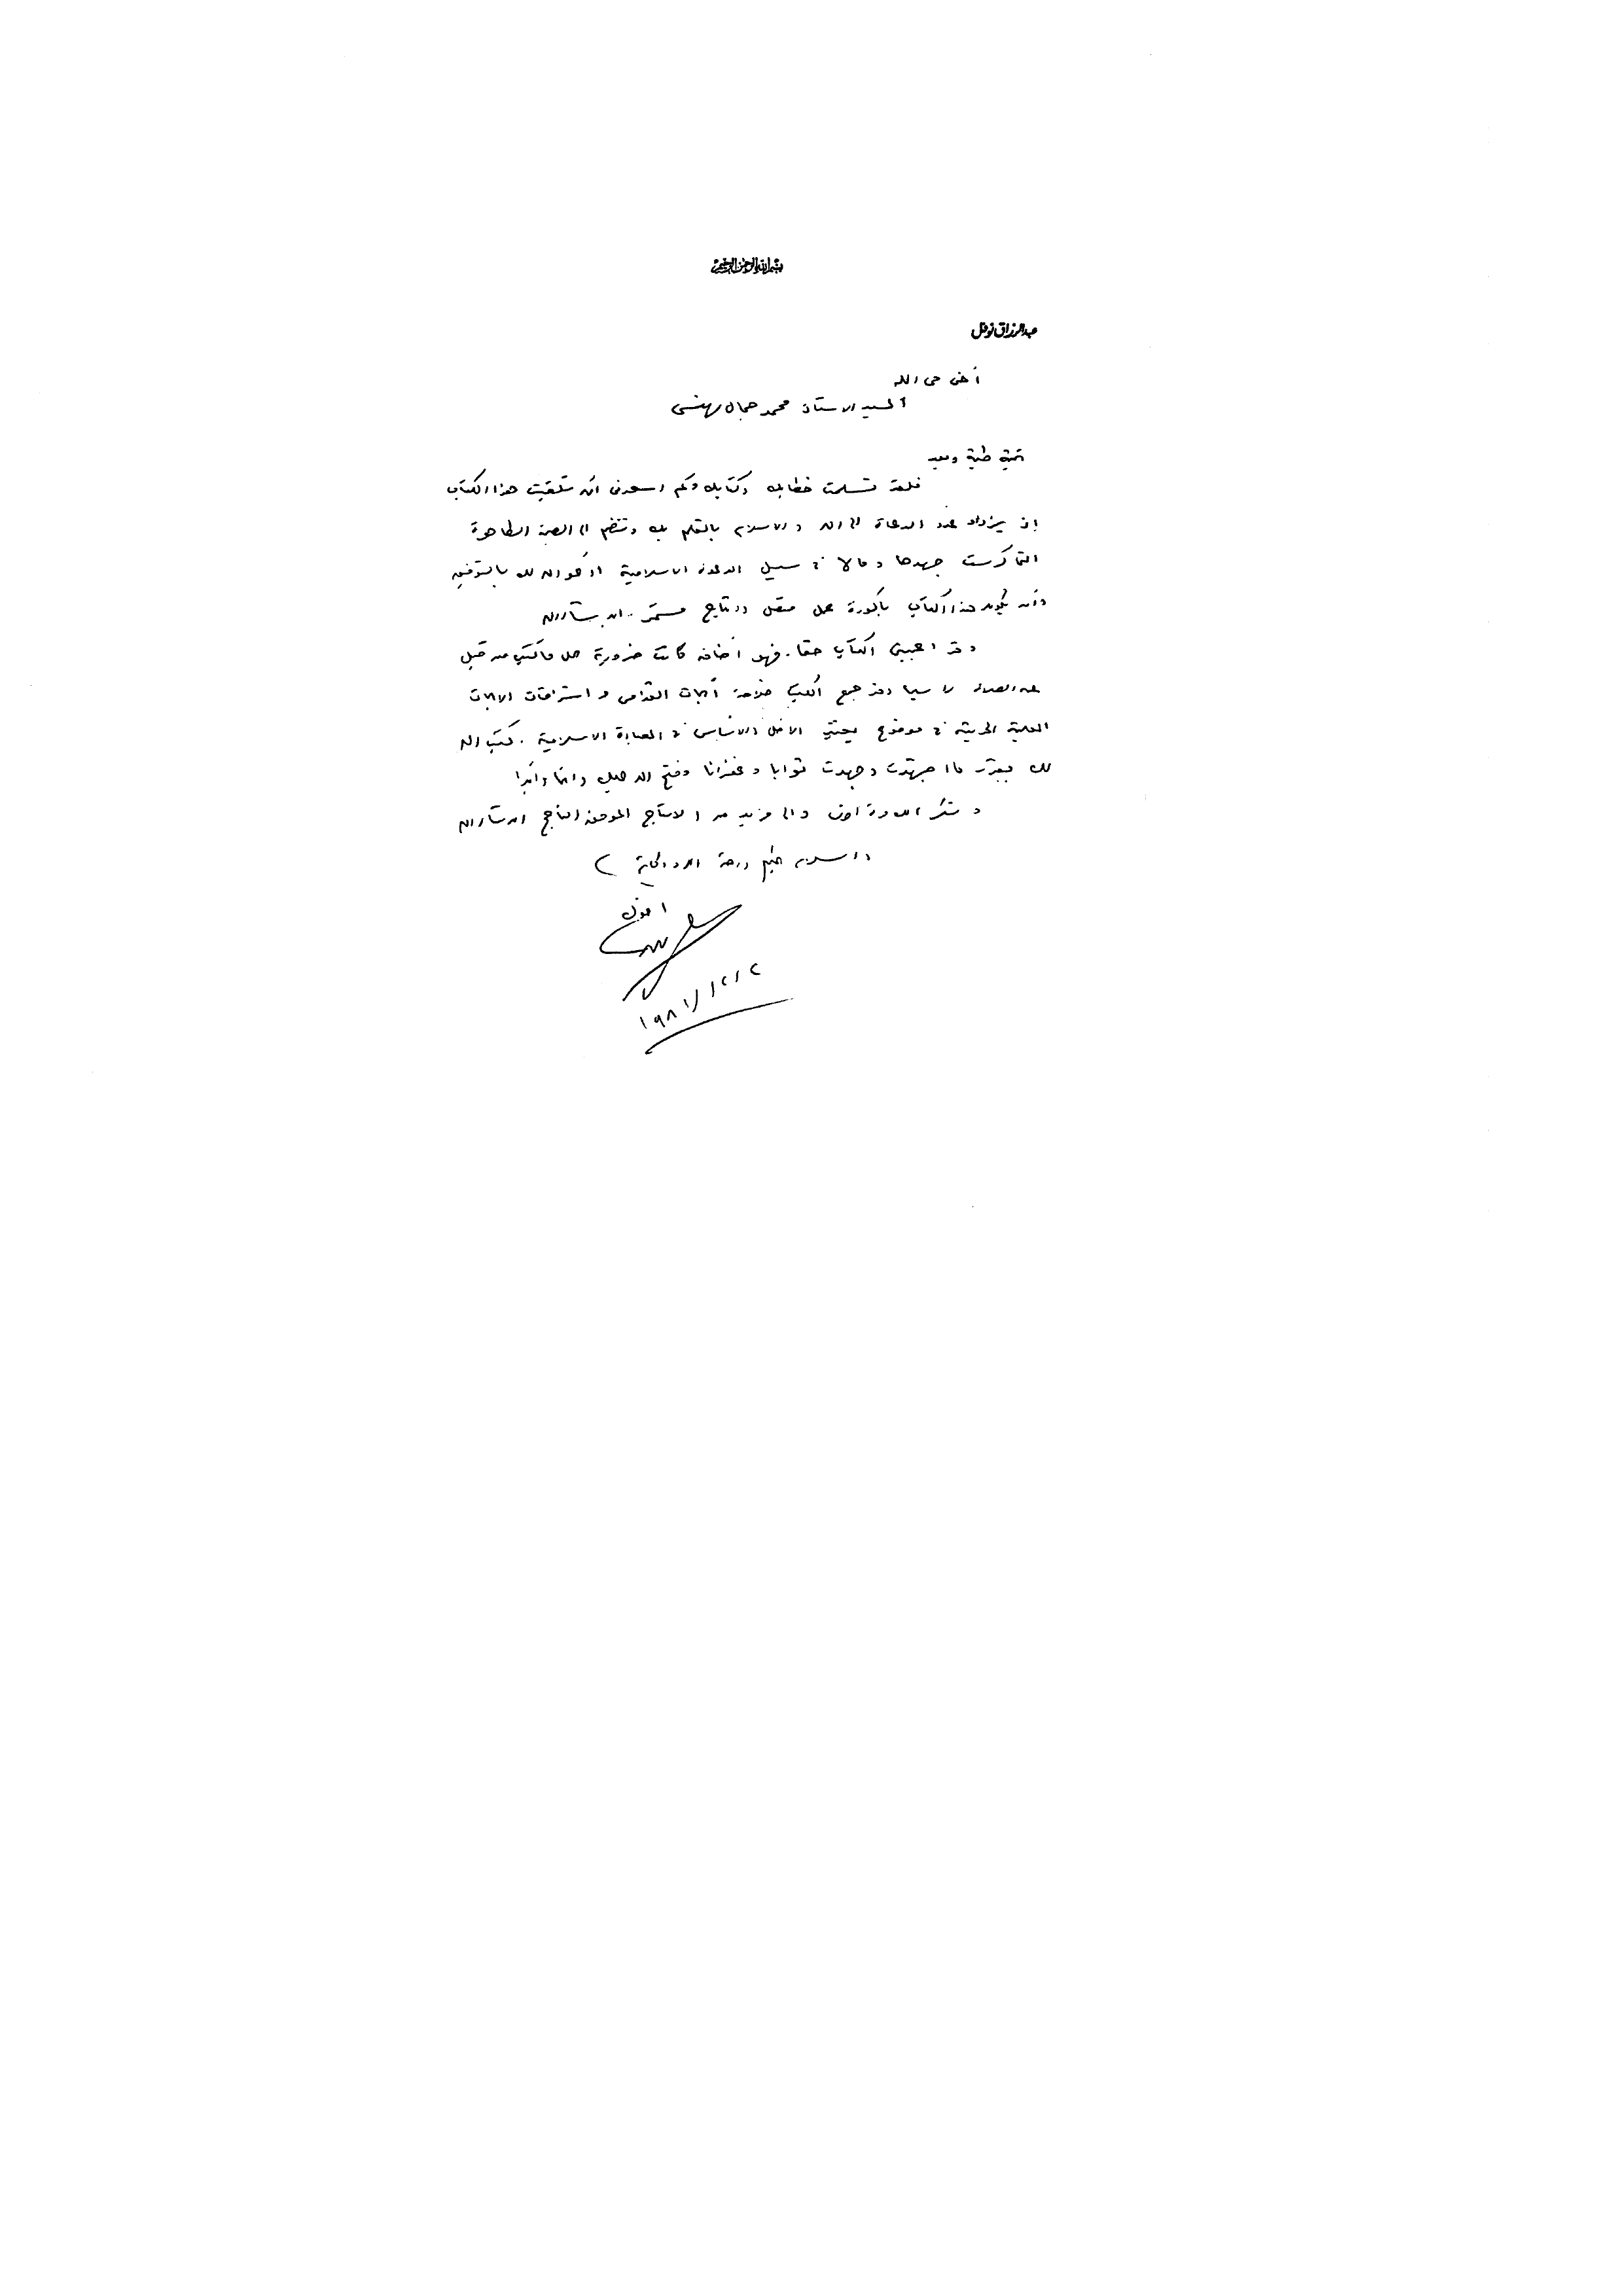 بسم الله الرحمن الرحيم
عبد الرزاق نوفل
أخى فى الله
السيد الاستاذ محمد جمال بهنسى
تحية طيبة وبعد
فلقد تسلمت خطابك وكتابك وكم اسعدنى أن تلقيت هذا الكتاب
إذ يزداد عدد الدعاة الى الله والاسلام بالقلم بك وتنضم الى الصحبة الطاهرة
التى كرست جهدها ومالا فى سبيل الدعوة الاسلامية ادعو الله لك بالتوفيق
وأن يكون هذا الكتاب باكورة عمل متصل وانتاج مستمر . ان شاء الله
وقد اعجبنى الكتاب حقا . فهو اضافة كانت ضرورية على ما كتب من قبل
عن الصلاة لا سيما وقد جمع الكتاب خلاصة أبحاث القدامى واستشرافات الابحاث
العلمية الحديثة فى موضوع يعتبر الاصل والاساس فى العبادة الاسلامية . كتب الله
لك بقدر ما اجتهدت وجهدت ثوابا وغفرانا وفتح الله عليك دائما وأبدا
وشكر الله لك والى مزيد من الانتاج الموفق الناجح ان شاء الله
والسلام عليكم ورحمة الله وبركاته
اخوك
١٩٨١/١٢/٢